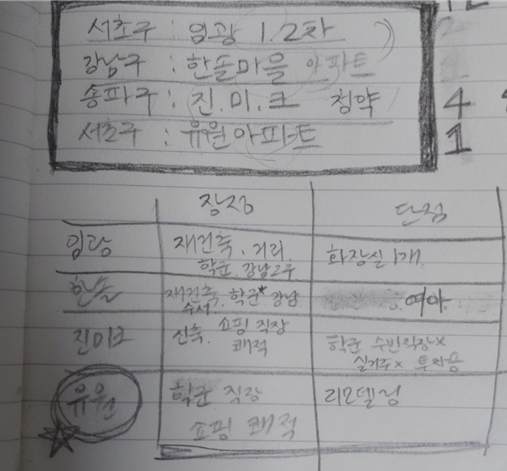 서초구 : 임광 1.2차
강남구 : 한솔마을 아파트
송파구 : 진.미.크 청약
4
서초구 : 유원아파트
1
장점 단점
임광 재건축. 거리 화장실 1개
학군 강남고우
한솔 재건축. 학군* 강남 여아
수서.
진미크 신축. 쇼핑 직장 학군 수반직장x
쾌적 실거주x 투자용
유원 학군 직장 리모델링
쇼핑 쾌적